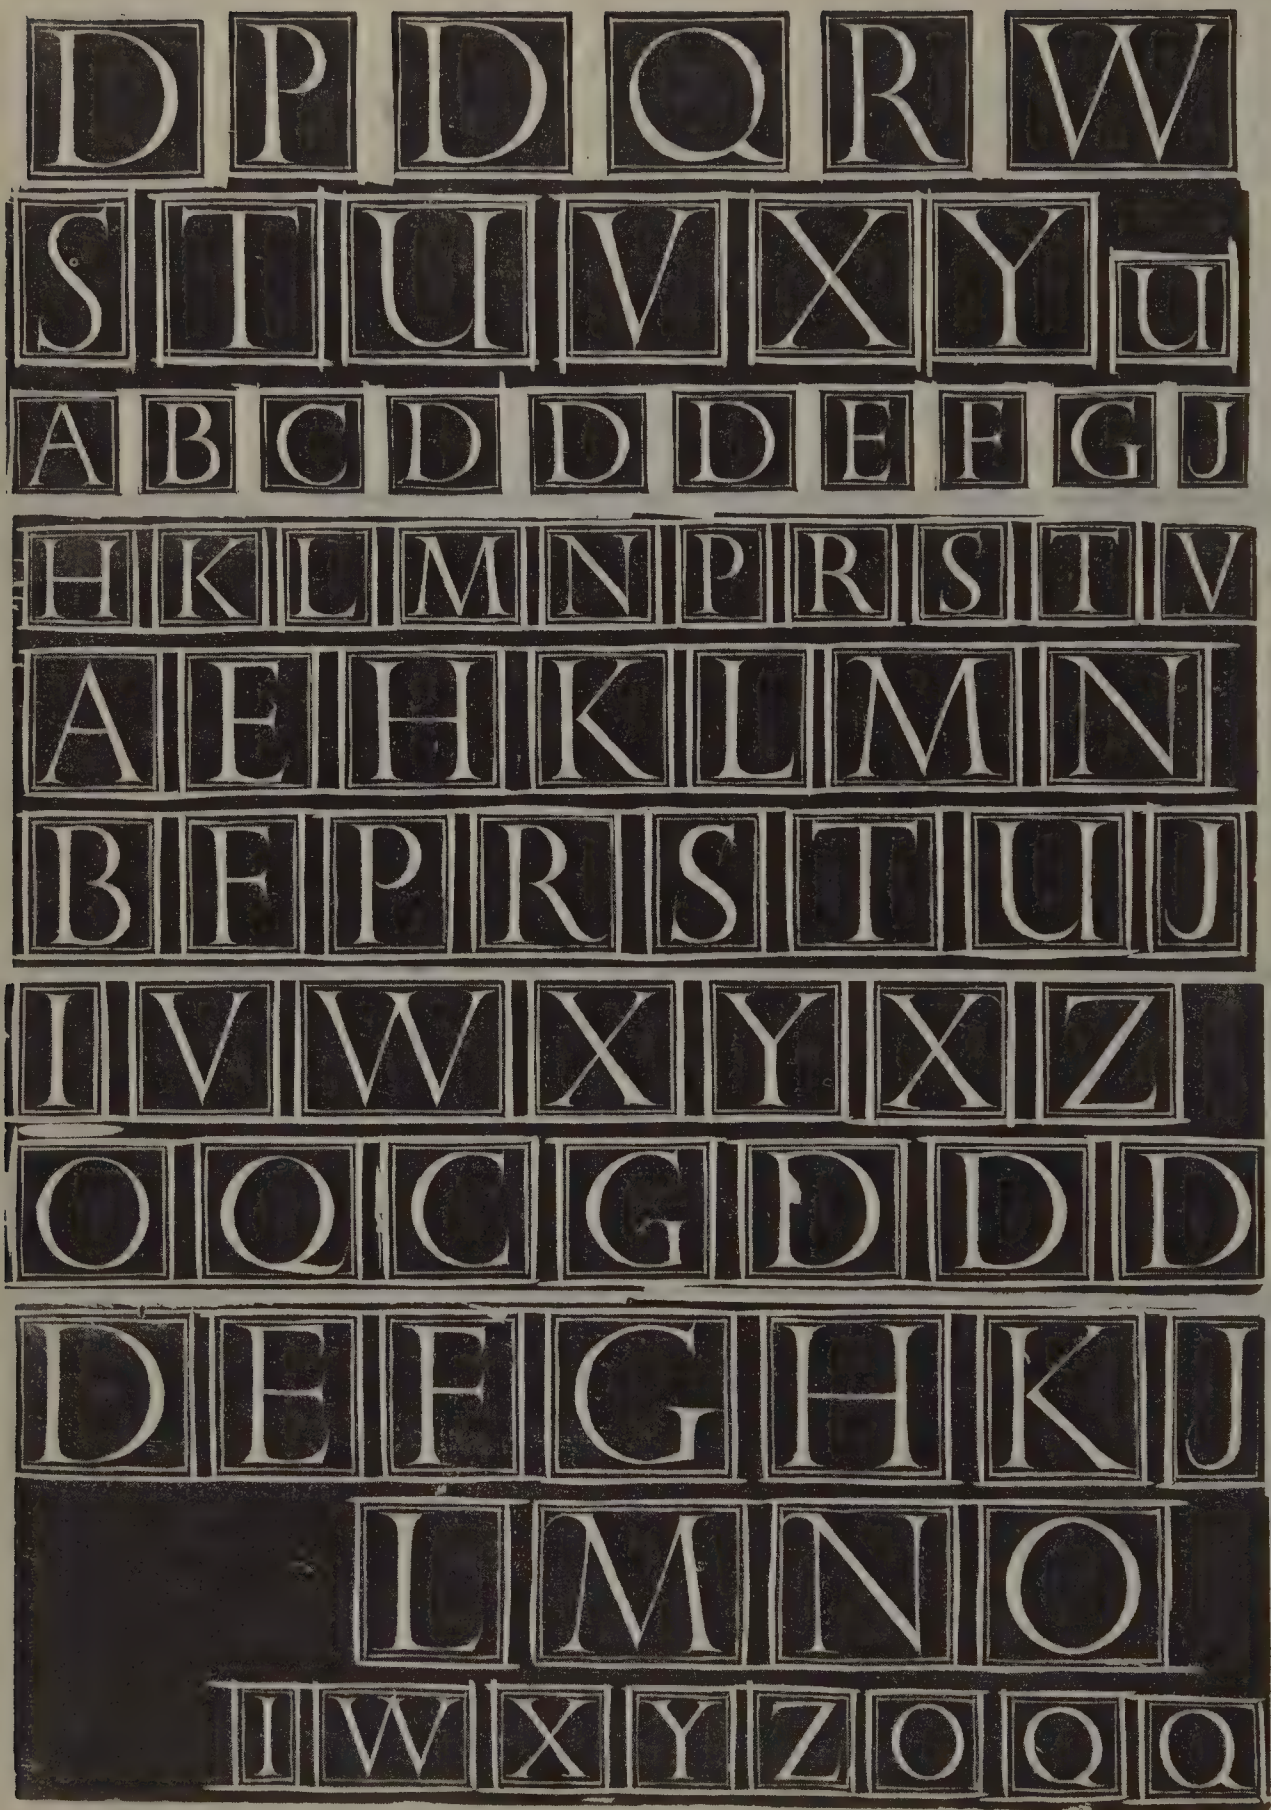 D P D Q R W
S T U V X Y U
A B C D D D E F G J
H K L M N P R S T V
A E H K L M N
B F P R S T U J
I V W X Y X Z
O Q C G D D D
D E F G H K J
L M N O
I W X Y Z O Q Q